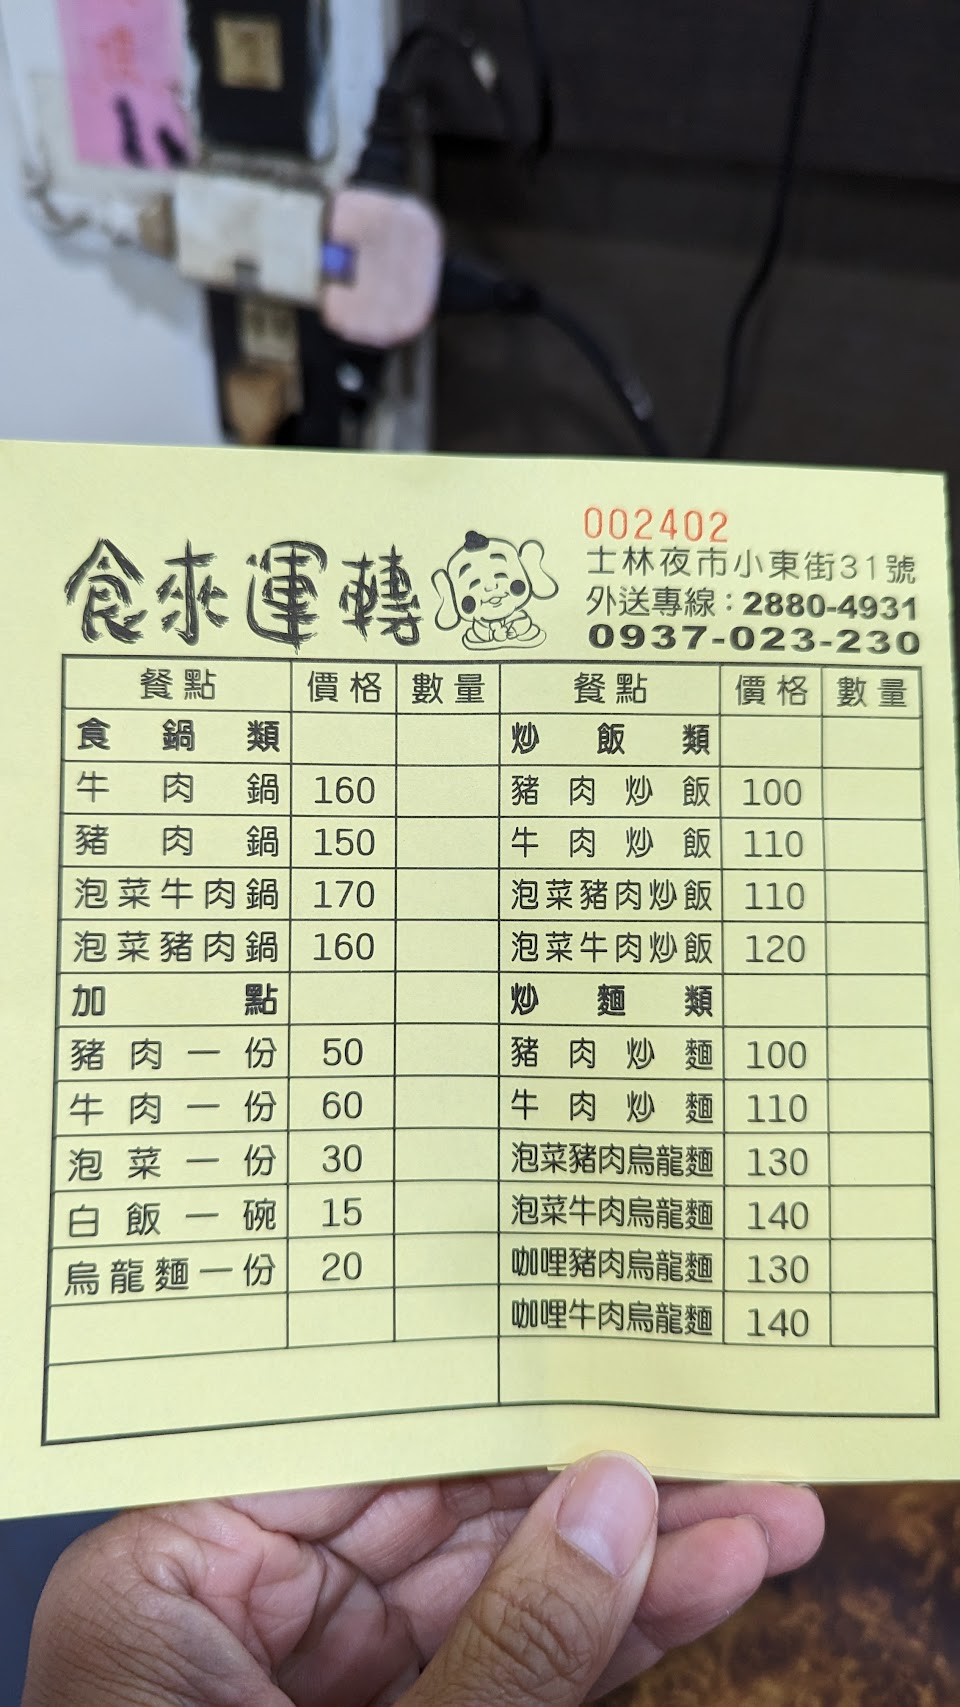 002402
食來運轉
士林夜市小東街31號
外送專線：2880-4931
0937-023-230
餐點 價格 數量 餐點 價格 數量
食鍋類 炒飯類
牛肉鍋 160 豬肉炒飯 100
豬肉鍋 150 牛肉炒飯 110
泡菜牛肉鍋 170 泡菜豬肉炒飯 110
泡菜豬肉鍋 160 泡菜牛肉炒飯 120
加點 炒麵類
豬肉一份 50 豬肉炒麵 100
牛肉一份 60 牛肉炒麵 110
泡菜一份 30 泡菜豬肉烏龍麵 130
白飯一碗 15 泡菜牛肉烏龍麵 140
烏龍麵一份 20 咖哩豬肉烏龍麵 130
咖哩牛肉烏龍麵 140